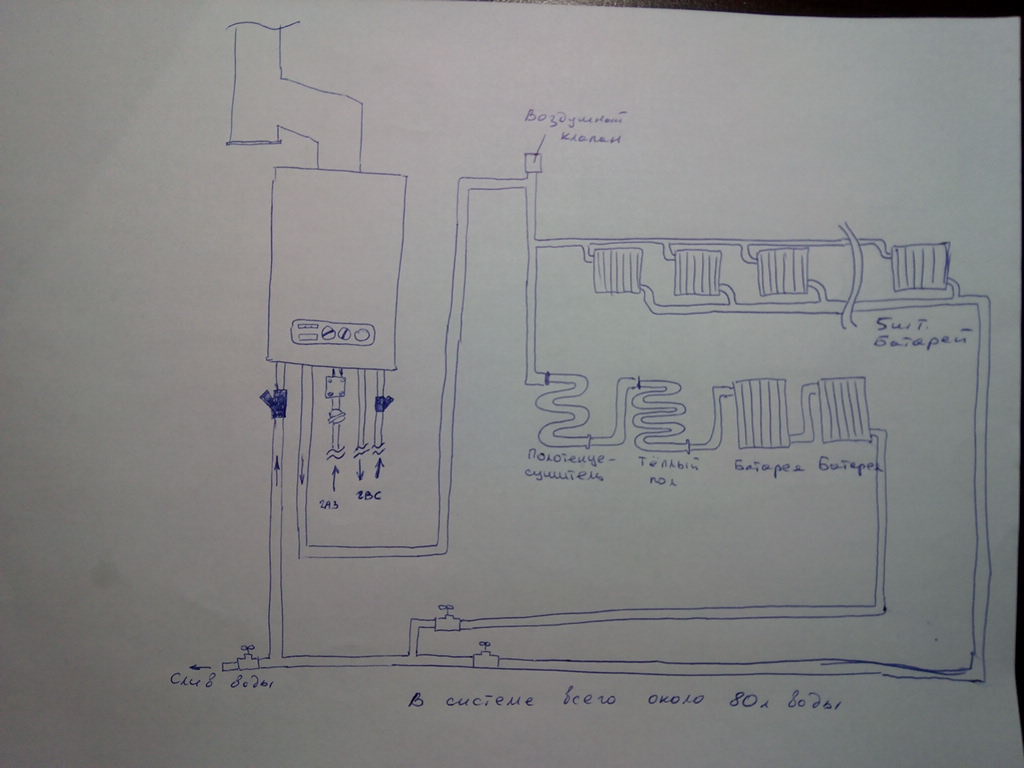 Воздушный
клапан
5шт.
Батарей
Полотенце-
сушитель
Тёплый
пол
Батарея
Батарея
ГАЗ
ГВС
Слив воды
В системе всего около 80л воды